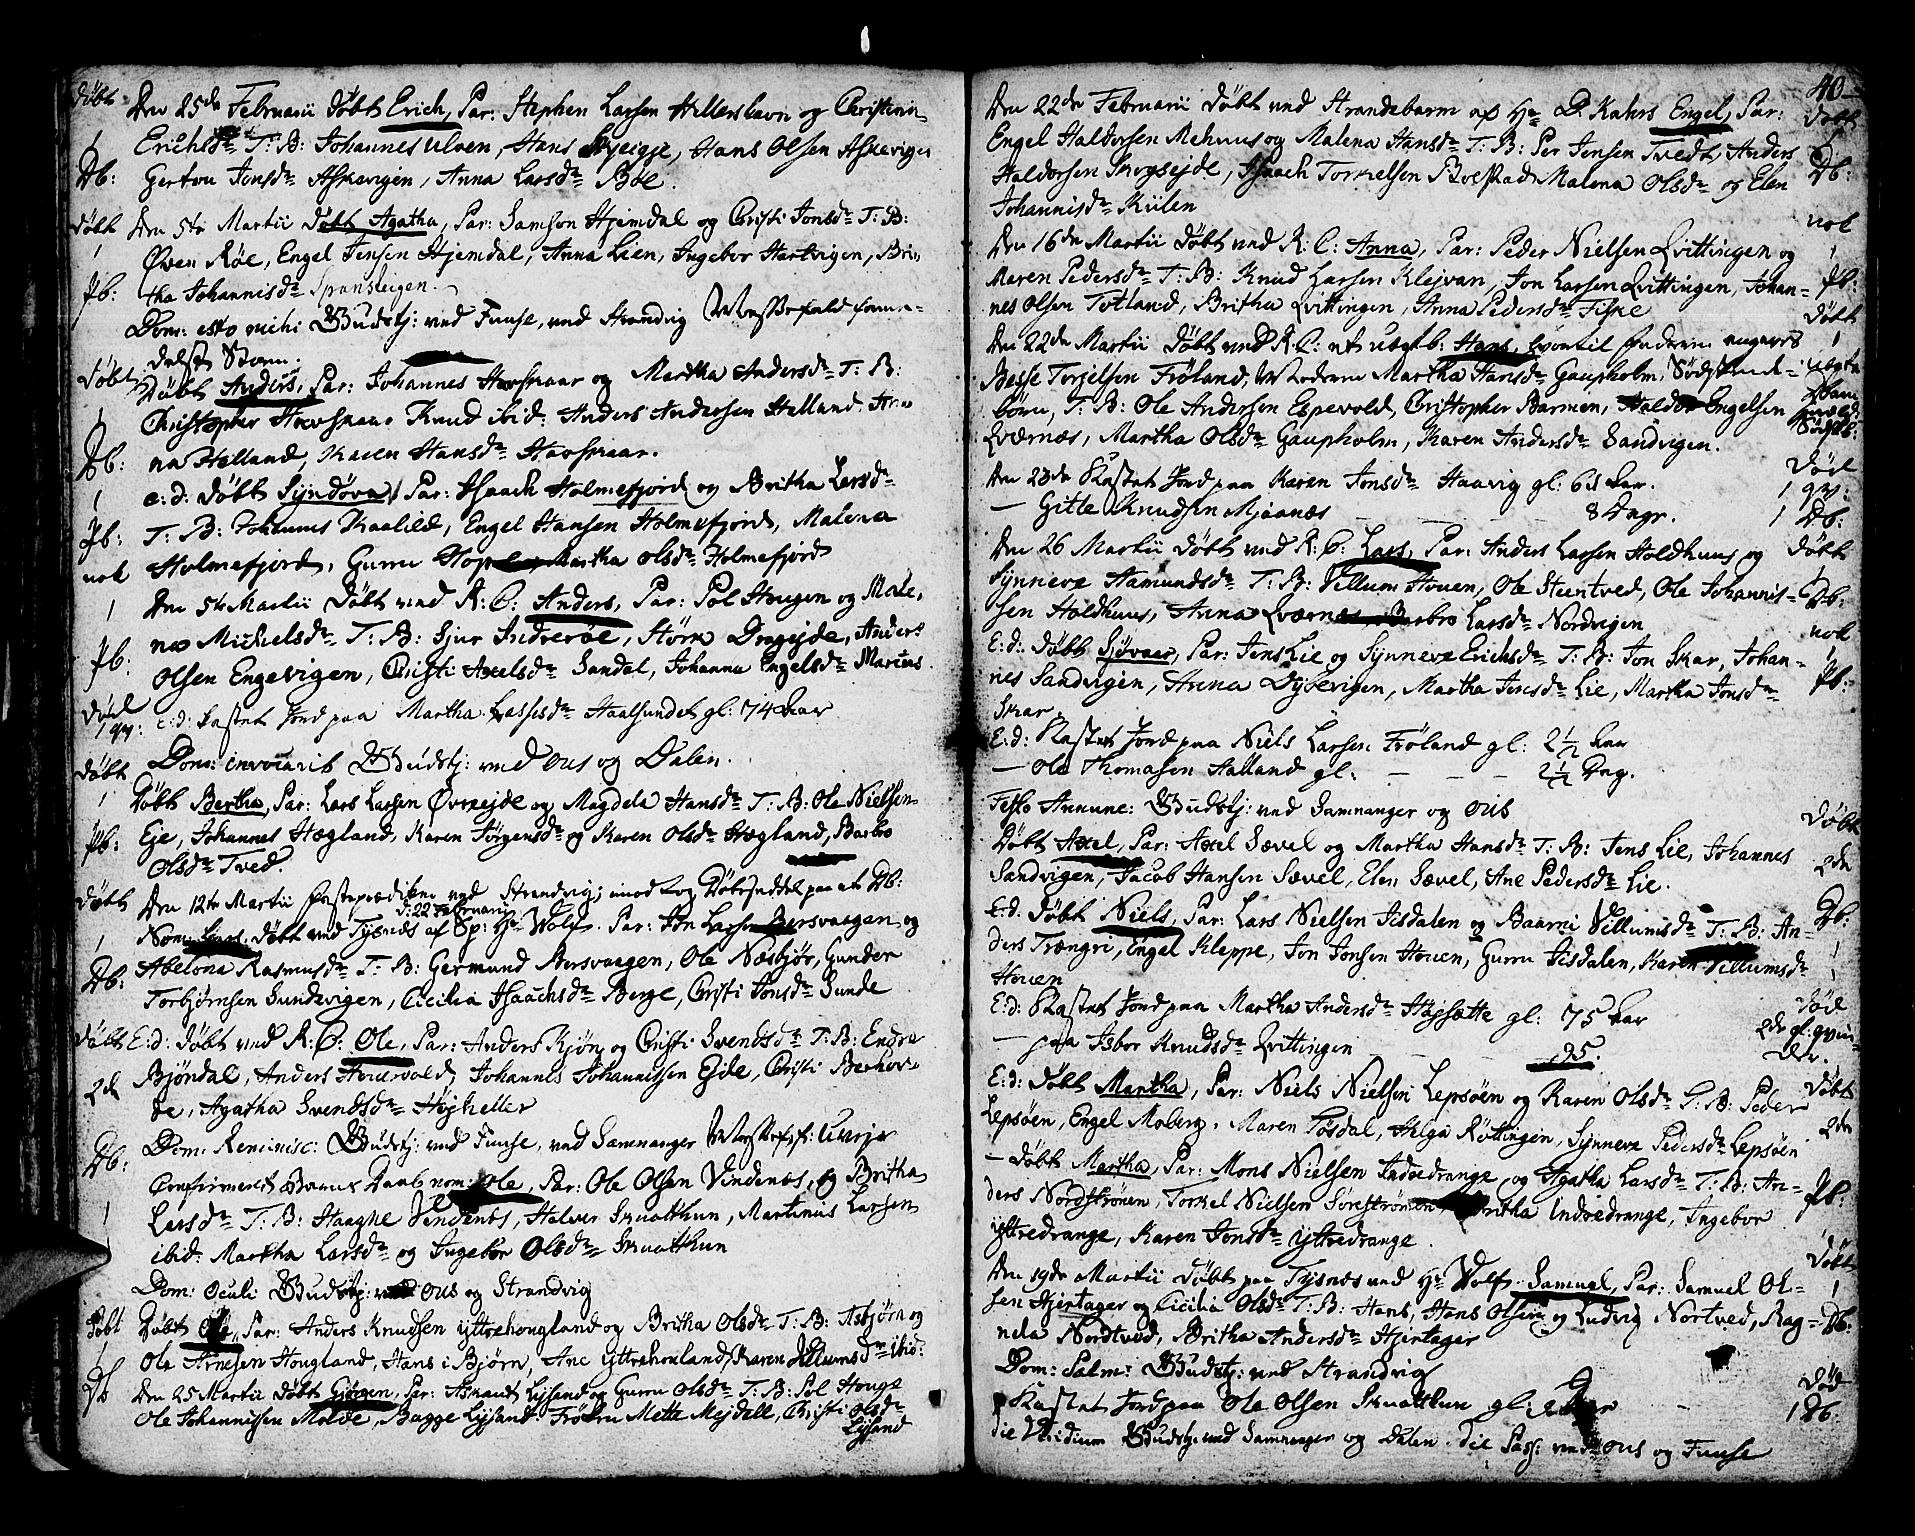 Døbt Den 25de Februarii Døbt Erich, Par: Stephen Larsen Hillershavn og Christin
1 Erichsdr T: B: Johannes Ulven, Hans Skjeigje, Hans Olsen Askevigen
Db: Gertou Jonsdr Askevigen, Anna Larsdr Bøe.
Døbt Den 5te Martii Døbt Agatha, Par: Samson Hjemdal og Christi Jonsdr T: B:
1 Øven Røe, Engel Jensen Hjemdal, Anna Lien, Ingebor Hartvigen, Bri,
Pb: tha Johannisdr Spansleigen.
Dom: esto mihi Gudstj: ved Fuuse, ved Strandvig
Døbt Døbt Anders, Par: Johannes Havskaar og Martha Andersdr T: B:
1 Christopher Havskaar Knud ibid: Anders Andersen Helland, An=
Db: na Helland, Karen Hansdr Havskaar.
1 e: d: Døbt Syndøva, Par: Isaach Holmefjord og Britha Larsdr
Pb: T: B: Johannes Skaalild, Engel Hansen Holmefjord, Malena
nok Holmefjord, Guru Martha Olsdr Holmefjord
1 Den 5te Martii Døbt ved R: C: Anders, Par: Pol Hougen og Male,
na Michelsdr T: B: Sjur Indrerøe, Størk Drageide, Anders
Pb: Olsen Engevigen, Christi Axelsdr Sandal, Johanna Engelsdr Marius
Død 1 qv: E: d: Kastet Jord paa Martha Lassesdr Haalsundet gl: 74 Aar
Døbt Dom: invocavit Gudstj: ved Ous og Dalen.
1 Døbt Bertha, Par: Lars Larsen Øvreejde og Magdela Hansdr T: B: Ole Nielsen
Pb: Eje, Johannes Hægland, Karen Jørgensdr og Karen Olsdr Hægland, Barbro
Olsdr Tved.
Døbt Den 12te Martii Fasteprædiken ved Strandvig; imod tog Døbeseddel paa et Db:
d: 22 Februarii
1 Nom: Lars Døbt ved Tysnæs af Sp: Hr Wolf. Par: Jon Larsen Bersvaagen og
Db: Abelona Rasmusdr T: B: Germund Bersvaagen, Ole Næsbjør, Gunder
Torbjørnsen Sundvigen, Cicilia Isaachsdr Berge, Christi Jonsdr Sunde
Døbt E: d: Døbt ved R: C: Ole, Par: Anders Kjøn og Christi Svendsdr T: B: Endre
2de Bjøndal, Anders Houevold, Johannes Johannissen Ejde, Christi Berhov=
de, Agatha Svendsdr Højheller
Db: Dom: Reminisc: Gudstj: ved Fuuse, ved Samnanger
Confirmeret Daab nom: Ole, Par: Ole Olsen Vindenes, og Britha
1 Larsdr T: B: Haaghe Vindenes, Halver Skuatthun, Martinus Larsen
ibid: Martha Larsdr og Ingebor Olsdr Skuatthun
Dom: Oculi Gudstj: ved Ous og Strandvig
Døbt Døbt Ole, Par: Anders Knudsen Yttrehougland og Britha Olsdr T: B: Asbjørn og
1 Ole Arnesen Hougland, Hans i Bjørn, Ane Yttrehouland, Karen Villumsdr ibid:
Db Den 25 Martii Døbt Gjørgen, Par: Askout Lysand og Guru Olsdr T: B: Pol Houge
Ole Johannissen Molde, Bagge Lysand, Frøken Mette Mejdell, Christi Olsdr
Lysand
40
Den 22de Februarii Døbt ved Strandebarm af Hr D. Kahrs Engel, Par: Døbt
Engel Haldorsen Mehuus og Malena Hansdr T: B: Per Jensen Tvedt, Anders 1
Haldorsen Skogsejde, Isaach Torkelsen Bolstad Malena Olsdr og Elen Db:
Johannisdr Kiilen
nok
Den 16de Martii Døbt ved R: C: Anna, Par: Peder Nielsen Qvittingen og 1
Maren Pedersdr T: B: Knud Larsen Klejvan, Jon Larsen Qvittingen, Johan= Pb:
nes Olsen Totland, Britha Qvittingen, Anna Pedersdr Fiske
Døbt
Den 22de Martii Døbt ved R: C: et uægtb: Hans, hvortil Faderen angaves 1
Besse Torjelsen Frøland, Moderen Martha Hansdr Gaupholm, Sødskende= uægte
børn, T: B: Ole Andersen Espevold, Christopher Barmen, Haldor Engelsen
Qværnes, Martha Olsdr Gaupholm, Karen Andersdr Sandvigen.
Død
Den 23de Kastet Jord paa Karen Jonsdr Haavig gl: 61 Aar. 1 qv:
— Gitle Knudsen Mjaanæs 8 Dage. 1 Db:
Den 26 Martii Døbt ved R: C: Lars, Par: Anders Larsen Holdhuus og Døbt
Synneve Hamundsdr T: B: Villum Houen, Ole Steentved, Ole Johannis= 1 Db:
sen Holdhuus, Anna Qværnes Barbro Larsdr Nordvigen
nok
E: d: Døbt Sjøvaar, Par: Jens Lie og Synneve Erichsdr T: B: Jon Skar, Johan= 1
nes Sandvigen, Anna Dybevigen, Martha Jonsdr Lie, Martha Jonsdr Pb:
Skar.
E: d: Kastet Jord paa Niels Larsen Frøland gl: 2 1/2 Aar
— Ole Thomasen Aalland gl: — — — 2 1/2 Dag.
Festo Annunc: Gudstj: ved Samnanger og Ous
Døbt
Døbt Axel, Par: Axel Sævel og Martha Hansdr T: B: Jens Lie, Johannes
2de
Sandvigen, Jacob Hansen Sævel, Elen Sævel, Ane Pedersdr Lie.
E: d: Døbt Niels, Par: Lars Nielsen Jisdalen og Baarni Villumsdr T: B: An= Db:
ders Trængri, Engel Kleppe, Jon Jonsen Houen, Guru Jisdalen, Karen Villumsdr 1
Houen
E: d: Kastet Jord paa Martha Andersdr Højsætte gl: 75 Aar Død
— paa Isbor Knudsdr Qvittingen — — 95. 2de gl: qvin=
der.
E: d: Døbt Martha, Par: Niels Nielsen Lepsøen og Karen Olsdr T: B: Peder Døbt
Lepsøen, Engel Moberg, Maren Tøsdal, Helga Røttingen, Synneve Pedersdr Lepsøen 2de
— Døbt Martha, Par: Mons Nielsen Indredrange og Agatha Larsdr T: B: An=
ders Nordstrønen, Torkel Nielsen Sørestrønen Britha Indredrange, Ingebor Pb:
Yttredrange, Karen Jonsdr Yttredrange.
Døbt
Den 19de Martii Døbt paa Tysnæs ved Hr Wolf Samuel, Par: Samuel Ol=
sen Hjertager og Cicilia Olsdr T: B: Hans, Hans Olsen og Ludvig Nortved, Rag= 1 Db:
nela Nordtved, Britha Andersdr Hjertager
Dom: Palm: Gudstj: ved Strandvig
Død
Kastet Jord paa Ole Olsen Skuatthun gl: 1 Db:
die Viridium Gudstj: ved Samnanger og Dalen. die Pasc: ved Ous og Fuuse